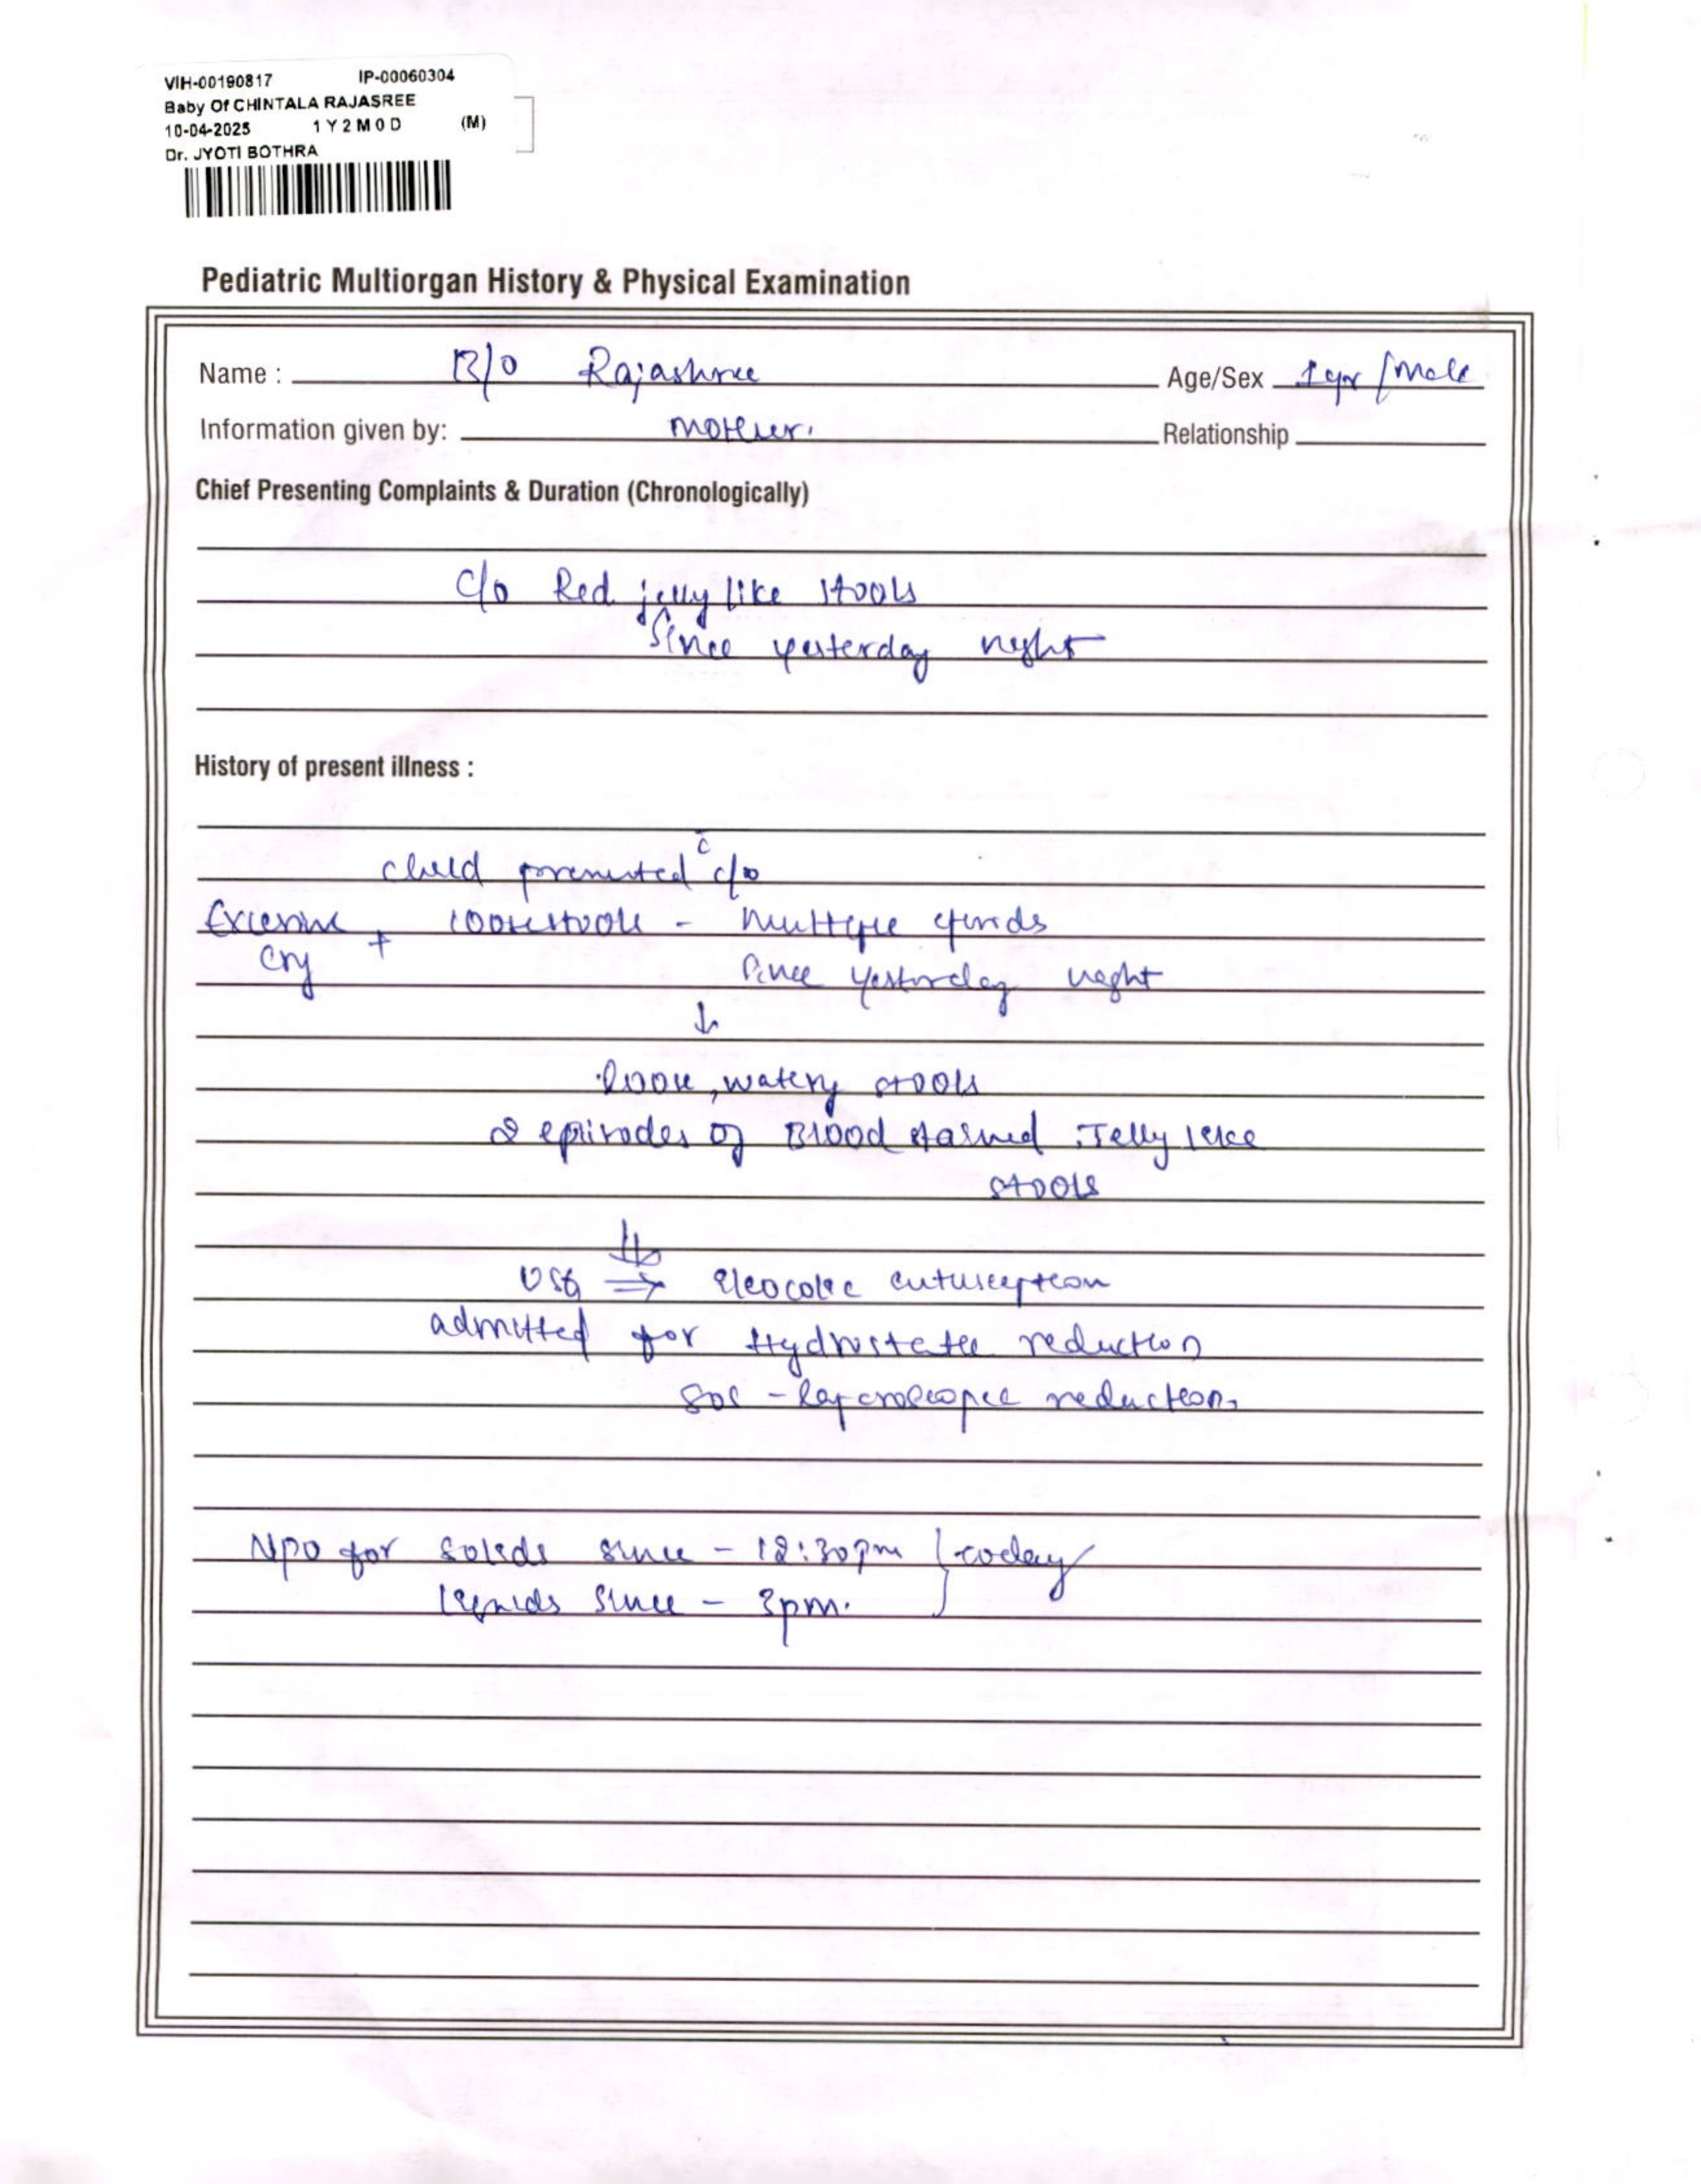 VIH-00190817 IP-00060304
Baby Of CHINTALA RAJASREE
10-04-2025 1Y2M0D (M)
Dr. JYOTI BOTHRA
Pediatric Multiorgan History & Physical Examination
Name : B/O Rajashree Age/Sex 1yr /Male
Information given by: mother. Relationship
Chief Presenting Complaints & Duration (Chronologically)
C/o Red jelly like stools
Since yesterday night
History of present illness :
child presented c̄ c/o
Excessive cry + loose stools - multiple episodes
since yesterday night
↓
loose, watery stools
2 episodes of Blood stained Jelly like
stools
↓
USG ⇒ Ileocolic intusception
admitted for Hydrostatic reduction
SOS - laparoscopic reduction.
NPO for solids since - 12:30pm } today
liquids since - 3pm.